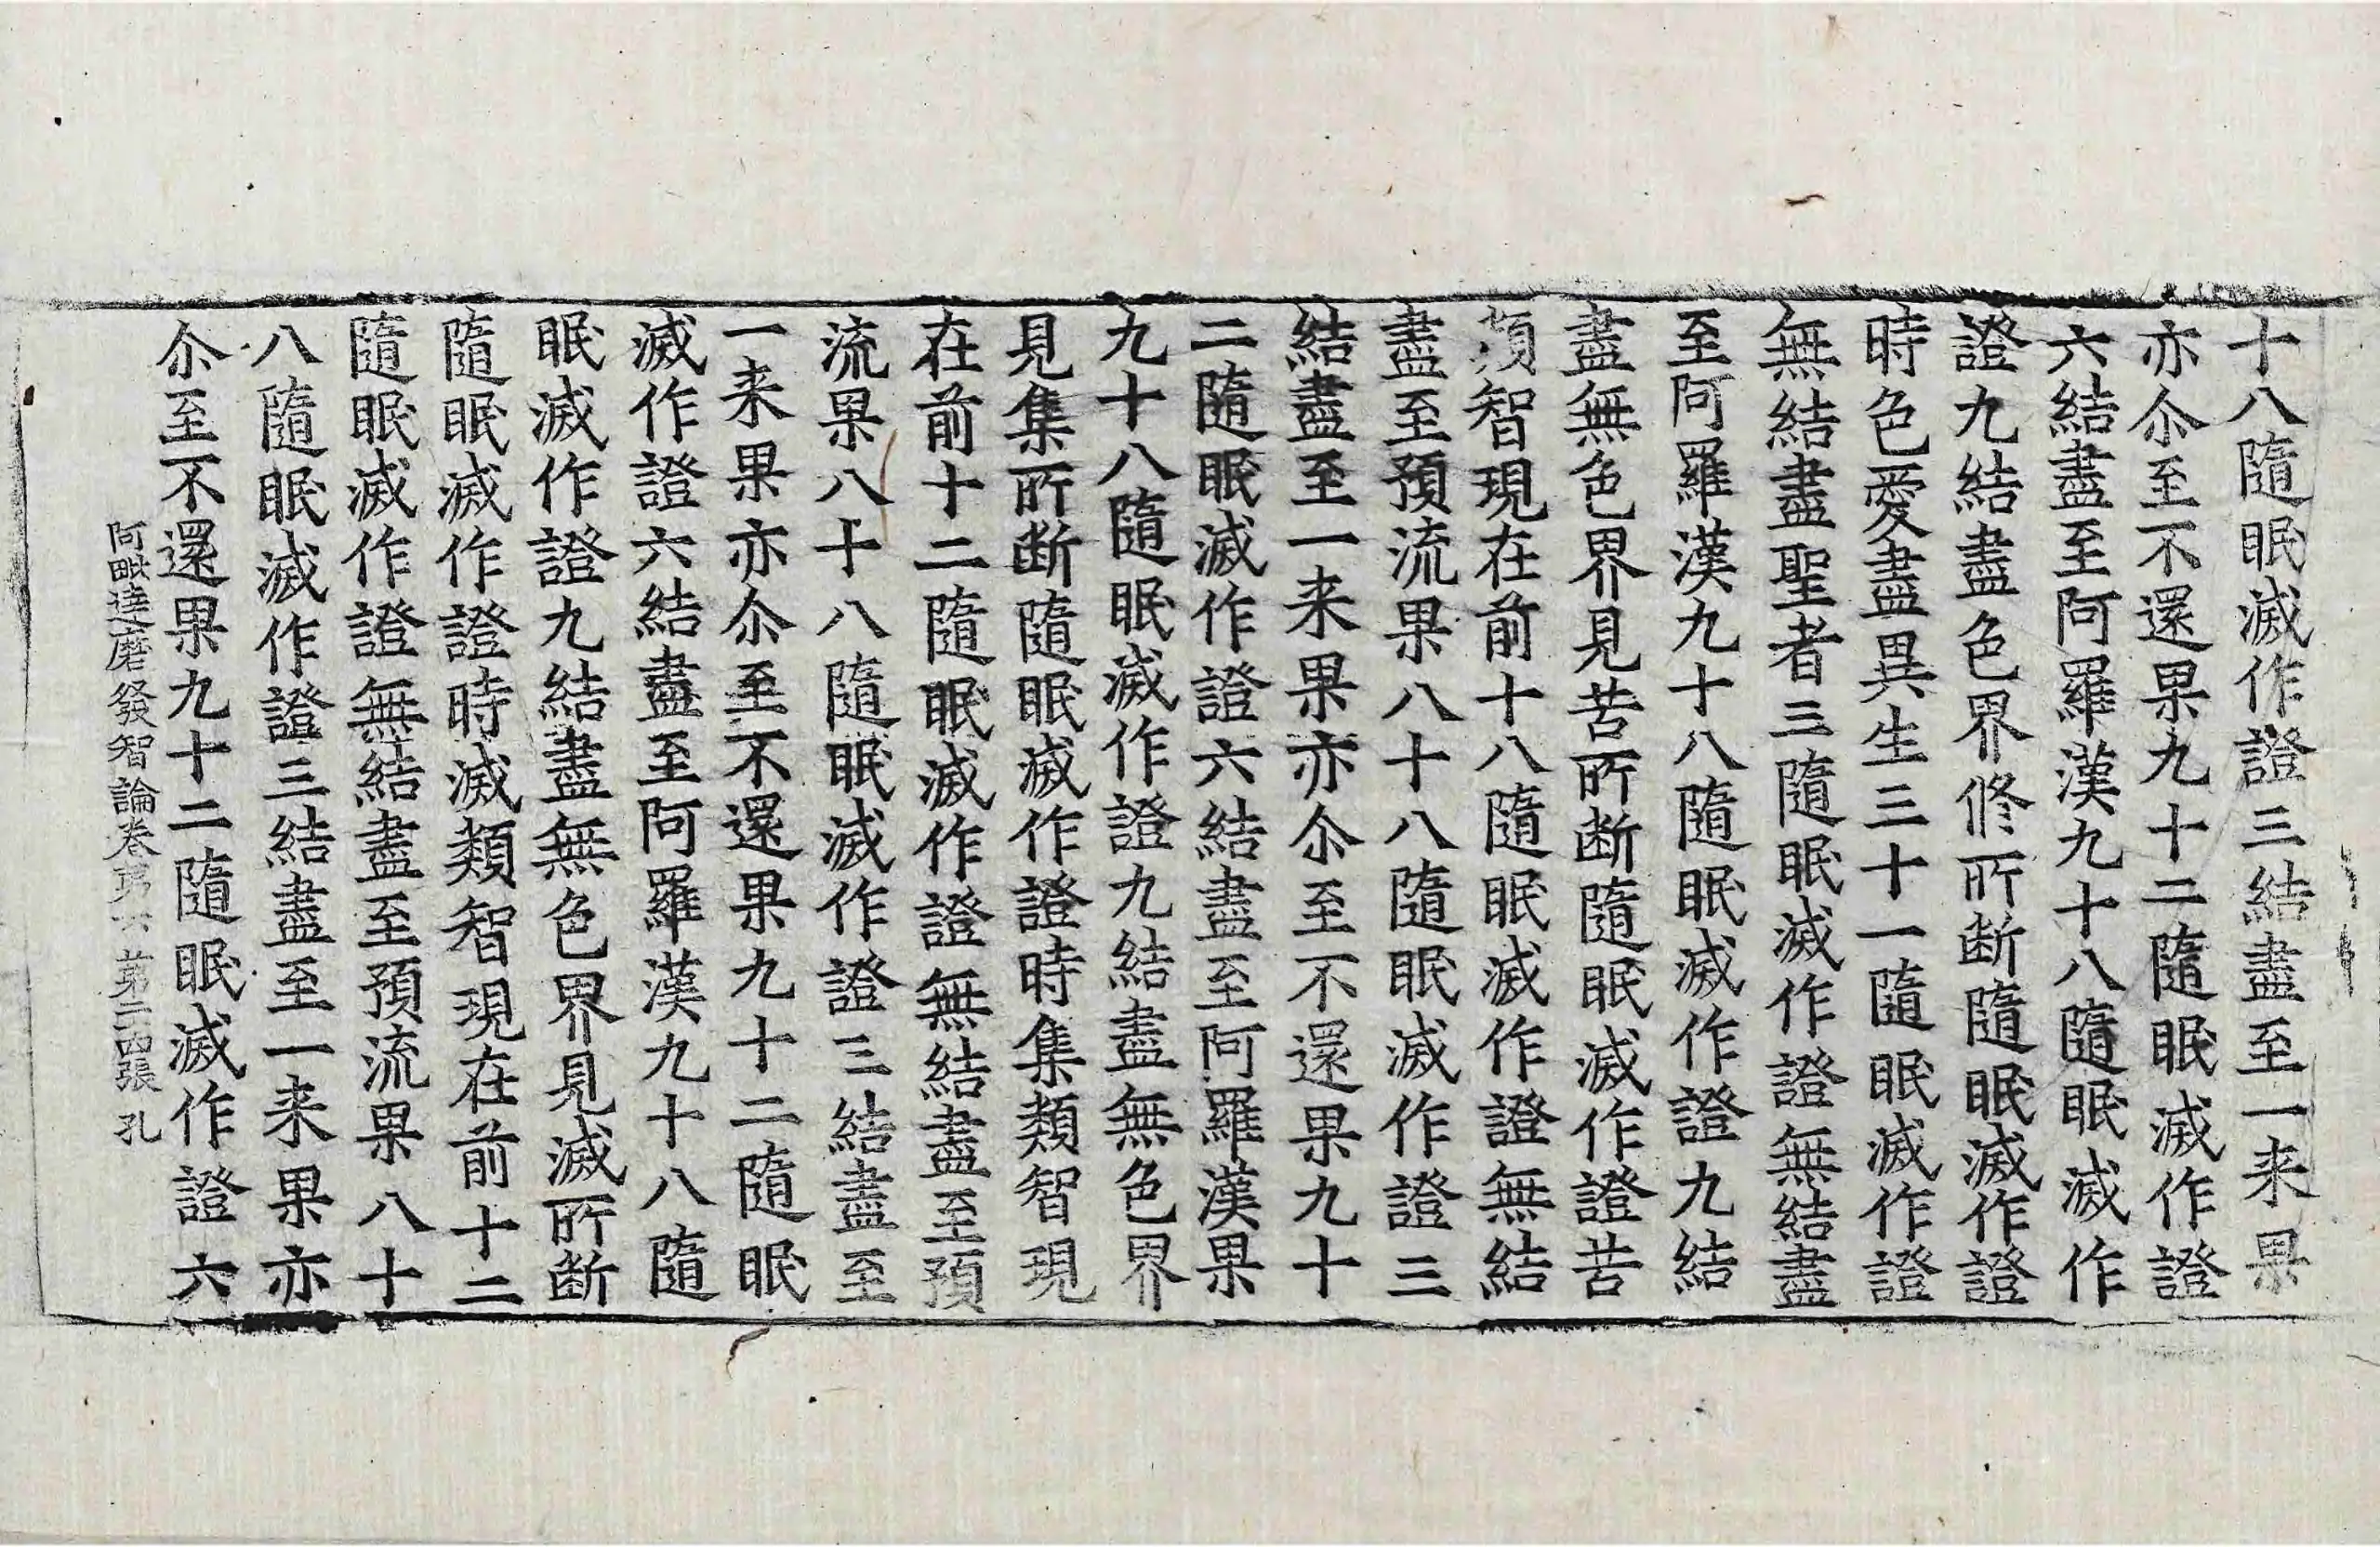 十八隨眠滅作證三結盡至一来果
亦尒至不還果九十二隨眠滅作證
六結盡至阿羅漢九十八隨眠滅作
證九結盡色界修所断隨眠滅作證
時色愛盡異生三十一隨眠滅作證
無結盡聖者三隨眠滅作證無結盡
至阿羅漢九十八隨眠滅作證九結
盡無色界見苦所断隨眠滅作證苦
類智現在前十八隨眠滅作證無結
盡至預流果八十八隨眠滅作證三
結盡至一来果亦尒至不還果九十
二隨眠滅作證六結盡至阿羅漢果
九十八隨眠滅作證九結盡無色界
見集所断隨眠滅作證時集類智現
在前十二隨眠滅作證無結盡至預
流果八十八隨眠滅作證三結盡至
一来果亦尒至不還果九十二隨眠
滅作證六結盡至阿羅漢九十八隨
眠滅作證九結盡無色界見滅所断
隨眠滅作證時滅類智現在前十二
隨眠滅作證無結盡至預流果八十
八隨眠滅作證三結盡至一来果亦
尒至不還果九十二隨眠滅作證六
阿毗達磨發智論卷苐六 第二四張 孔